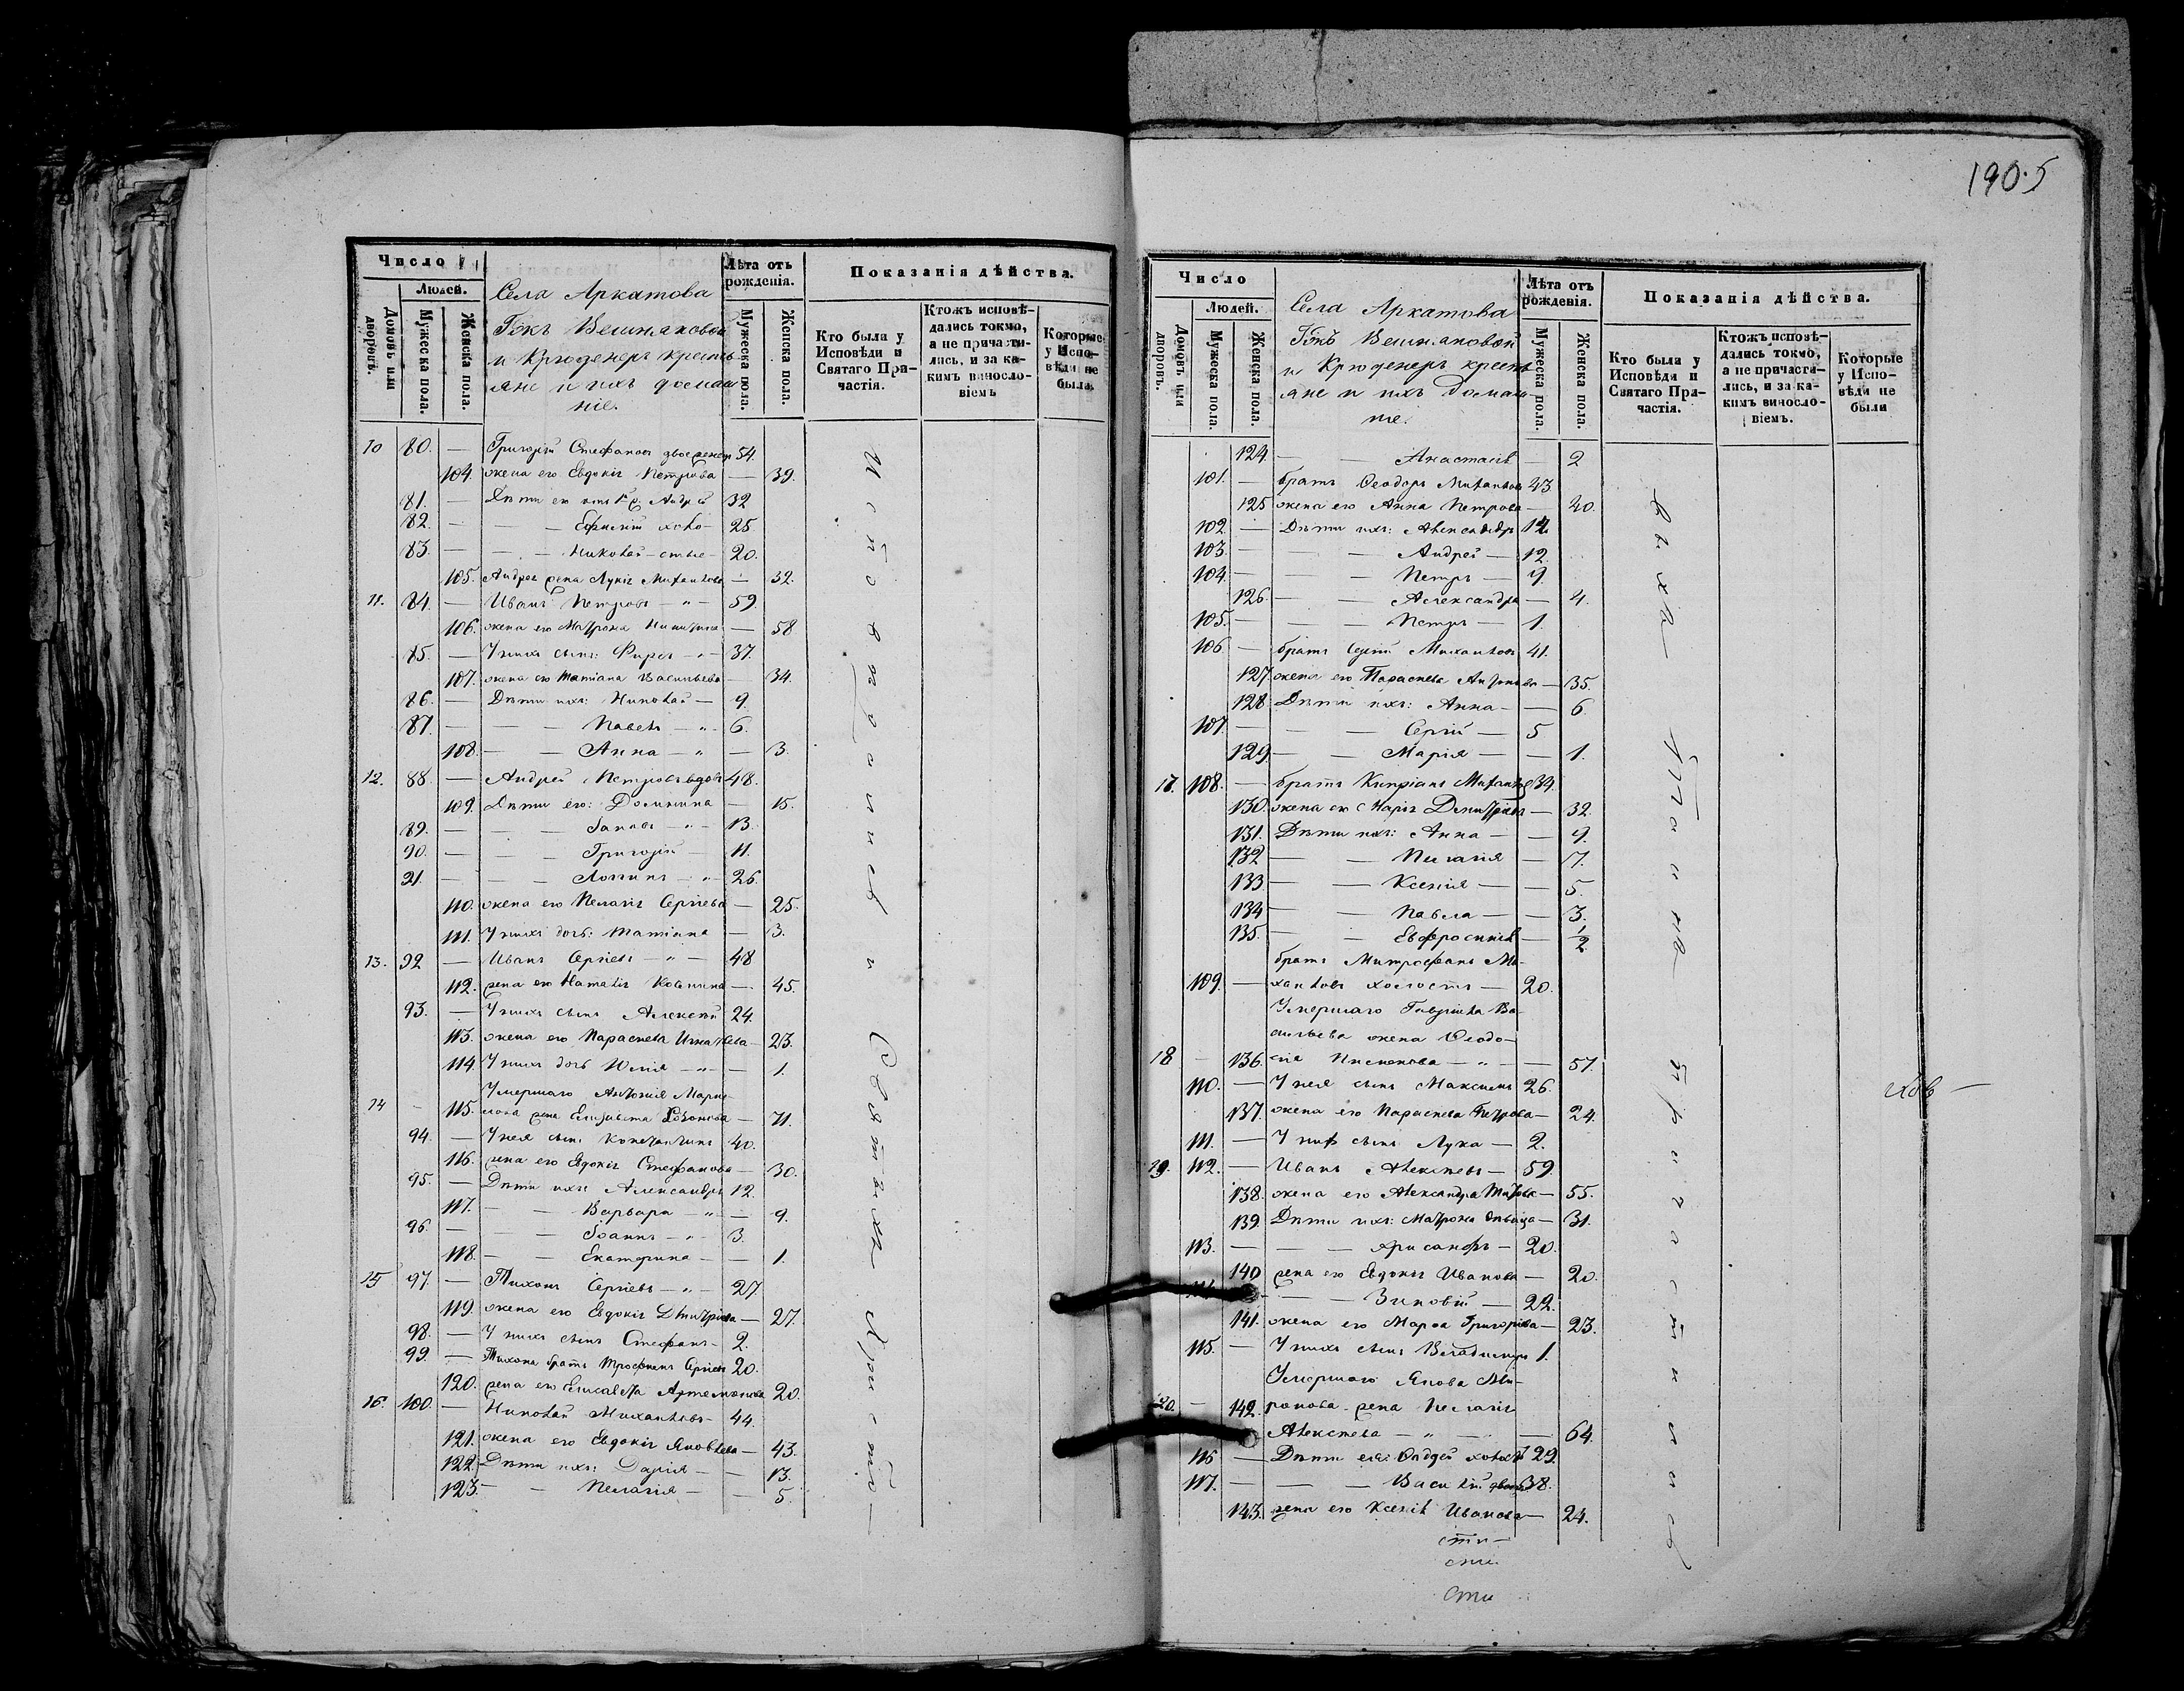 Число
Людей.
Домовъ или дворовъ.
Мужеска пола.
Женска пола.
Села Аркатова
Гжъ Вешняковой
и Крюденеръ кресть
яне и ихъ домаш
ніе.
Лѣта отъ рожденія.
Мужеска пола.
Женска пола.
Показанія дѣйства.
Кто были у Исповѣди и Святаго Причастія.
Ктожъ исповѣдались токмо, а не причастились, и за какимъ винословіемъ
Которые у Исповѣди не были
10 80. — Григорій Стефановъ 54.
104. жена его Евдокія Петрова — 39.
81. — Дѣти Андрей 32
82. — — Ефимій холо — 25
83. — — Николай — 20.
105. Андрея жена Лукія Михайлова — 32.
11. 84. — Иванъ Петровъ — " — 59.
106. жена его Матрона Никитина — 58
85. — У нихъ сынъ: Фирсъ — " — 37.
107. жена его Татіана Васильева — 34.
86. — Дѣти ихъ: Николай — 9.
87. — — Павелъ — " — 6.
108. — — Анна — " — 3.
12. 88. — Андрей Петровъ вдовъ 48.
109. Дѣти его: Домнина — 15.
89. — — — Іаковъ — " — 13.
90. — — — Григорій — 11.
91. — — — Логгинъ — " — 26.
110. жена его Пелагія Сергіева — 25.
111. У нихъ дочь: Татіана — 3.
13. 92 — Иванъ Сергіевъ — " — 48
112. жена его Наталія Косьмина — 45.
93. — У нихъ сынъ Алексій 24.
113. жена его Параскева Игнатьева — 23.
114. У нихъ дочь Юлія — " — 1.
Умершаго Антонія Марке-
14 — 115. лова жена Елизавета — 71.
94. — У нея сынъ Константинъ 40.
116. жена его Евдокія Стефанова — 30.
95. — Дѣти ихъ Александръ 12.
117. — — Варвара — " — 9.
96. — — Іоаннъ — " — 3.
118. — — Екатерина — — 1.
15 97. — Тихонъ Сергіевъ — " — 27
119. жена его Евдокія Димитріева — 27.
98. — У нихъ сынъ Стефанъ — 2.
99. — Тихона братъ Трофимъ Сергіевъ 20.
120. жена его Елисавета Артемонова 20.
16. 100. — Николай Михаиловъ — 44.
121. жена его Евдокія Яковлева — 43.
122. Дѣти ихъ: Дарія — — 13.
123. — — Пелагія — — 5.
Исповѣдронись и Святыхъ Христо—
190.5
Число
Людей.
Домовъ или дворовъ.
Мужеска пола.
Женска пола.
Села Аркатова
Гжъ Вешняковой
и Крюденеръ кресть
яне и ихъ домаш-
ніе.
Лѣта отъ рожденія.
Мужеска пола.
Женска пола.
Показанія дѣйства.
Кто были у Исповѣди и Святаго Причастія.
Ктожъ исповѣдались токмо, а не причастились, и за какимъ винословіемъ.
Которые у Исповѣди не были
124. — — Анастасія — 2
101. — братъ Ѳеодоръ Михаиловъ 43.
125 жена его Анна Петрова — 40.
102. — Дѣти ихъ: Александръ 14.
103. — — Андрей — 12.
104. — — — Петръ — 9.
126. — — Александра — 4.
105. — — Петръ — 1.
106 — братъ Сергій Михаиловъ 41.
127. жена его Параскева — 35.
128. Дѣти ихъ: Анна — — 6.
107. — — — Сергій — 5
129 — — Марія — — 1.
17. 108. — братъ Кипріанъ Михаиловъ 34.
130. жена его Марія Димитріева — 32.
131. Дѣти ихъ: Анна — — 9.
132 — — Пелагія — 7.
133 — — Ксенія — — 5.
134 — — Павла — — 3.
135. — — Евфросинія — 1/2
братъ Митрофанъ Ми-
109. — хаиловъ холостъ — 20.
Умершаго Гавріила Ва-
сильева жена Ѳеодо-
18 — 136. сія — " — — 57.
110. — У нея сынъ Максимъ 26.
137. жена его Параскева Петрова — 24.
111. — У нихъ сынъ Лука — 2.
19. 112. — Иванъ Алексѣевъ — 59.
138. жена его Александра — 55.
139. Дѣти ихъ: Матрона дѣвица — 31.
113. — — — Хрисанфъ — 20.
140 жена его Евдокія Иванова — 20.
114. — — Зиновій — 22.
141. жена его Марѳа Григорьева — 23.
115. — У нихъ сынъ Владимиръ 1.
Умершаго Якова Ми-
20. — 142. ронова жена Пелагія
Алексѣева — " — — 64.
116 — Дѣти ея: Ѳаддей холостъ 29.
117. — — — Василій 38.
143. жена его Ксенія Иванова — 24.
сти—
сти.
сти
выхъ Таинъ приобстились